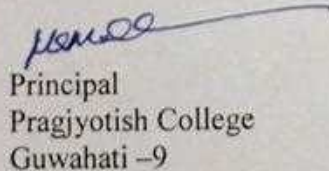 Principal
Pragjyotish College
Guwahati –9